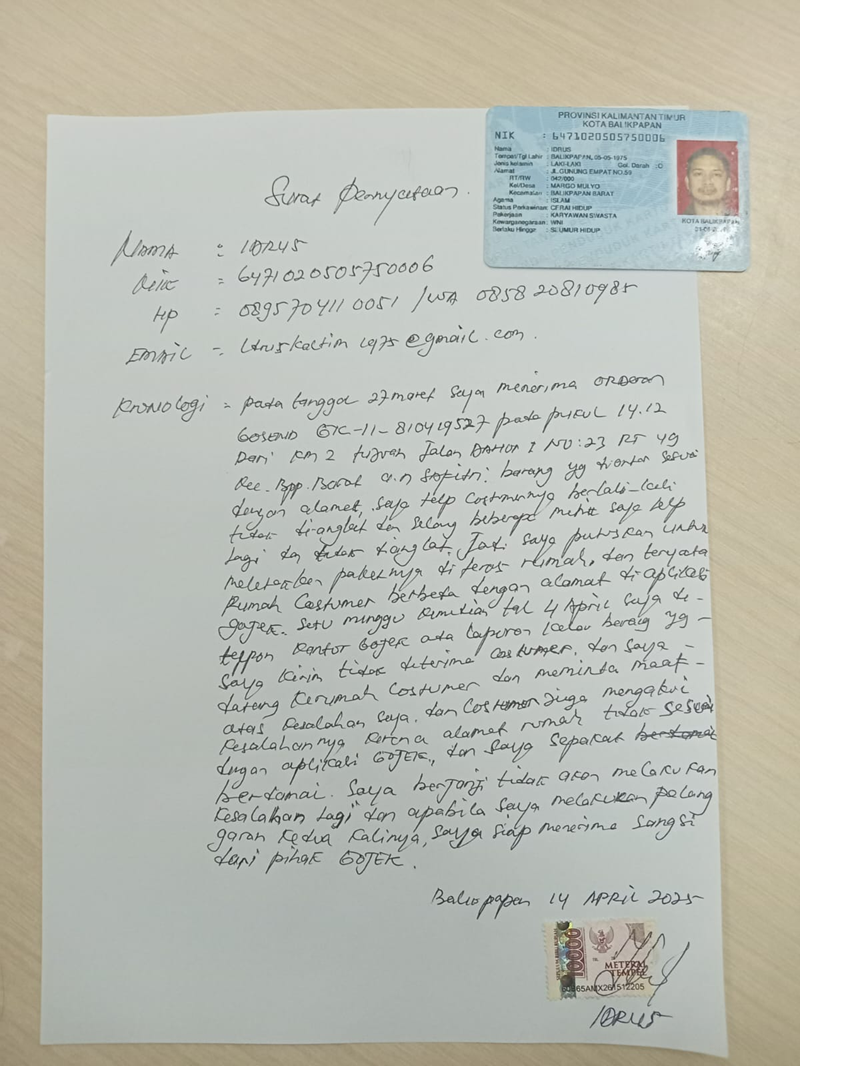 PROVINSI KALIMANTAN TIMUR
KOTA BALIKPAPAN
NIK : 6471020505750006
Nama : IDRUS
Tempat/Tgl Lahir : BALIKPAPAN, 05-05-1975
Jenis kelamin : LAKI-LAKI Gol. Darah : O
Alamat : JL.GUNUNG EMPAT NO.59
RT/RW : 042/000
Kel/Desa : MARGO MULYO
Kecamatan : BALIKPAPAN BARAT
Agama : ISLAM
Status Perkawinan: CERAI HIDUP
Pekerjaan : KARYAWAN SWASTA
Kewarganegaraan: WNI
Berlaku Hingga : SEUMUR HIDUP
KOTA BALIKPAPAN
Surat Pernyataan.
NAMA : IDRUS
Nik : 6471020505750006
HP : 0895704110051 / WA 085820810985
EMAIL : @gmail.com.
Kronologi = pada tanggal 27 maret saya menerima orderan
GOSEND GK-11-810419527 pada pukul 14.12
Dari KM 2 tujuan Jalan NO:23 RT 49
Kec. Bpp. Barat a.n Safitri. barang yg diantar sesuai
dengan alamat, saya telp costumernya berkali-kali
tidak di-angkat dan selang beberapa menit saya telp
lagi dan tidak diangkat, Jadi saya putuskan untuk
meletakkan paketnya di teras rumah, dan ternyata
Rumah Costumer berbeda dengan alamat di aplikasi
gojek. satu minggu kemudian tgl 4 April saya di-
telpon kantor GOJEK ada laporan kalau barang yg-
saya kirim tidak diterima costumer, dan saya-
datang kerumah costumer dan meminta maaf-
atas kesalahan saya, dan costumer juga mengakui
kesalahannya karena alamat rumah tidak sesuai
dengan aplikasi GOJEK, dan saya sepakat
berdamai. Saya berjanji tidak akan melakukan
kesalahan lagi dan apabila saya melakukan pelang
garan kedua kalinya, saya siap menerima sangsi
dari pihak GOJEK.
Balikpapan 14 APRIL 2025
10000
METERAI
TEMPEL
IDRUS